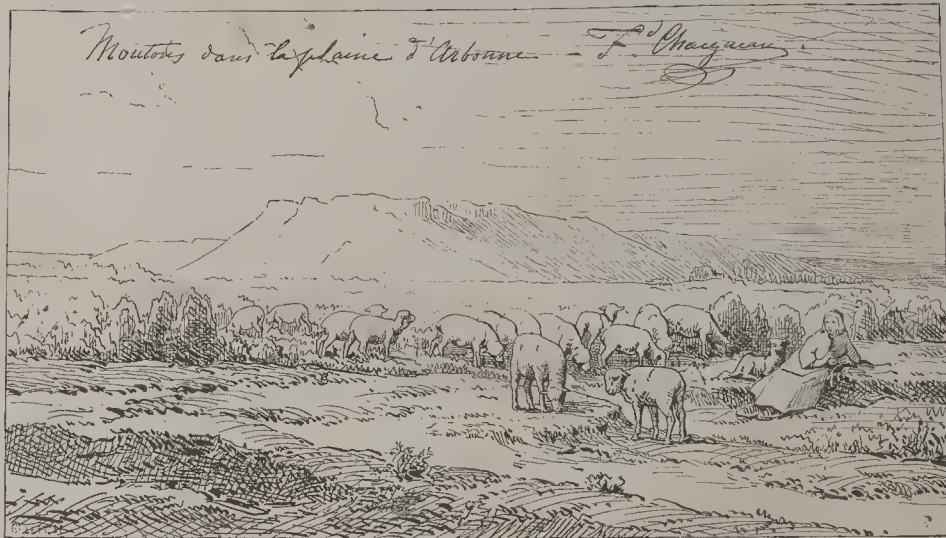 Moutons dans la plaine d'Arbonne — Fd Chaigneau